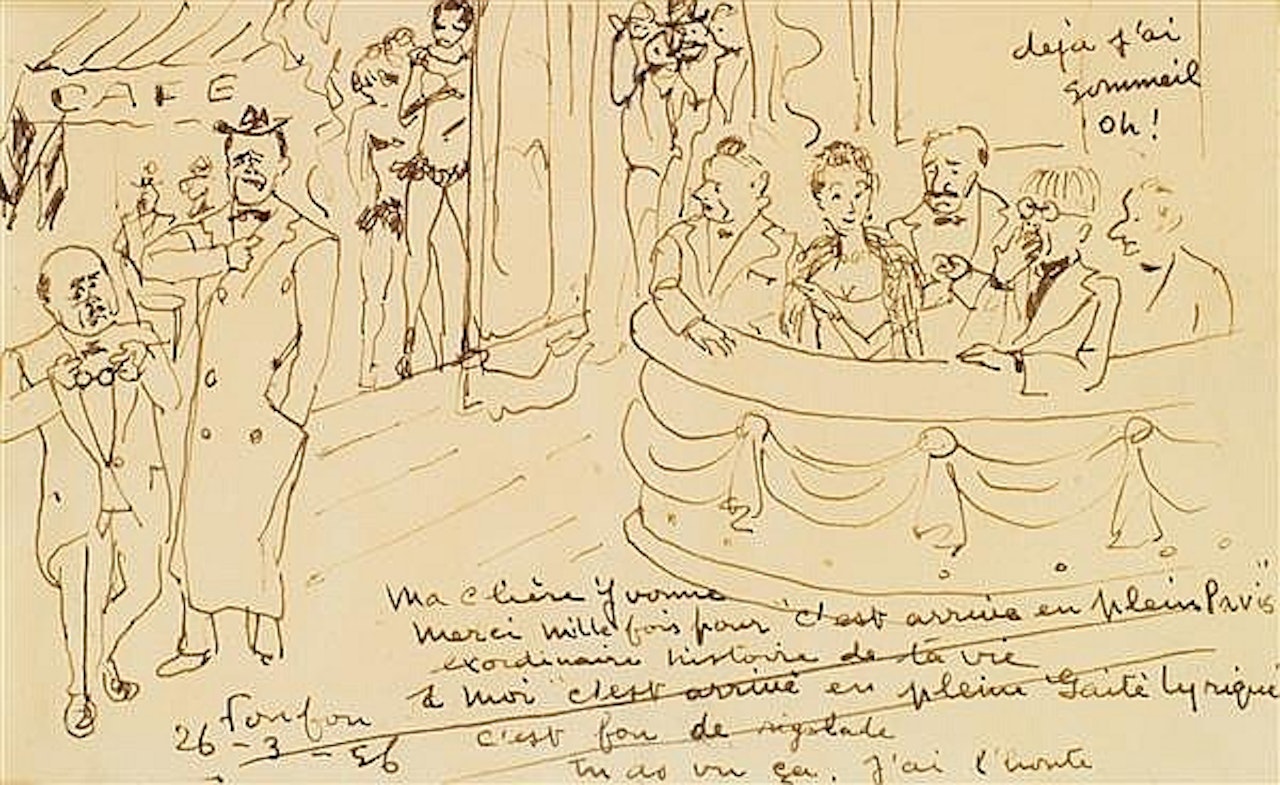 CAFE
deja j'ai
sommeil
oh!
Ma chère Yvonne
Merci mille fois pour "c'est arrivé en plein Paris"
exordinaire histoire de ta vie
à moi "c'est arrivé en pleine Gaité Lyrique
c'est fou de rigolade
tu as vu ça. J'ai l'honte
Foufou
26-3-56